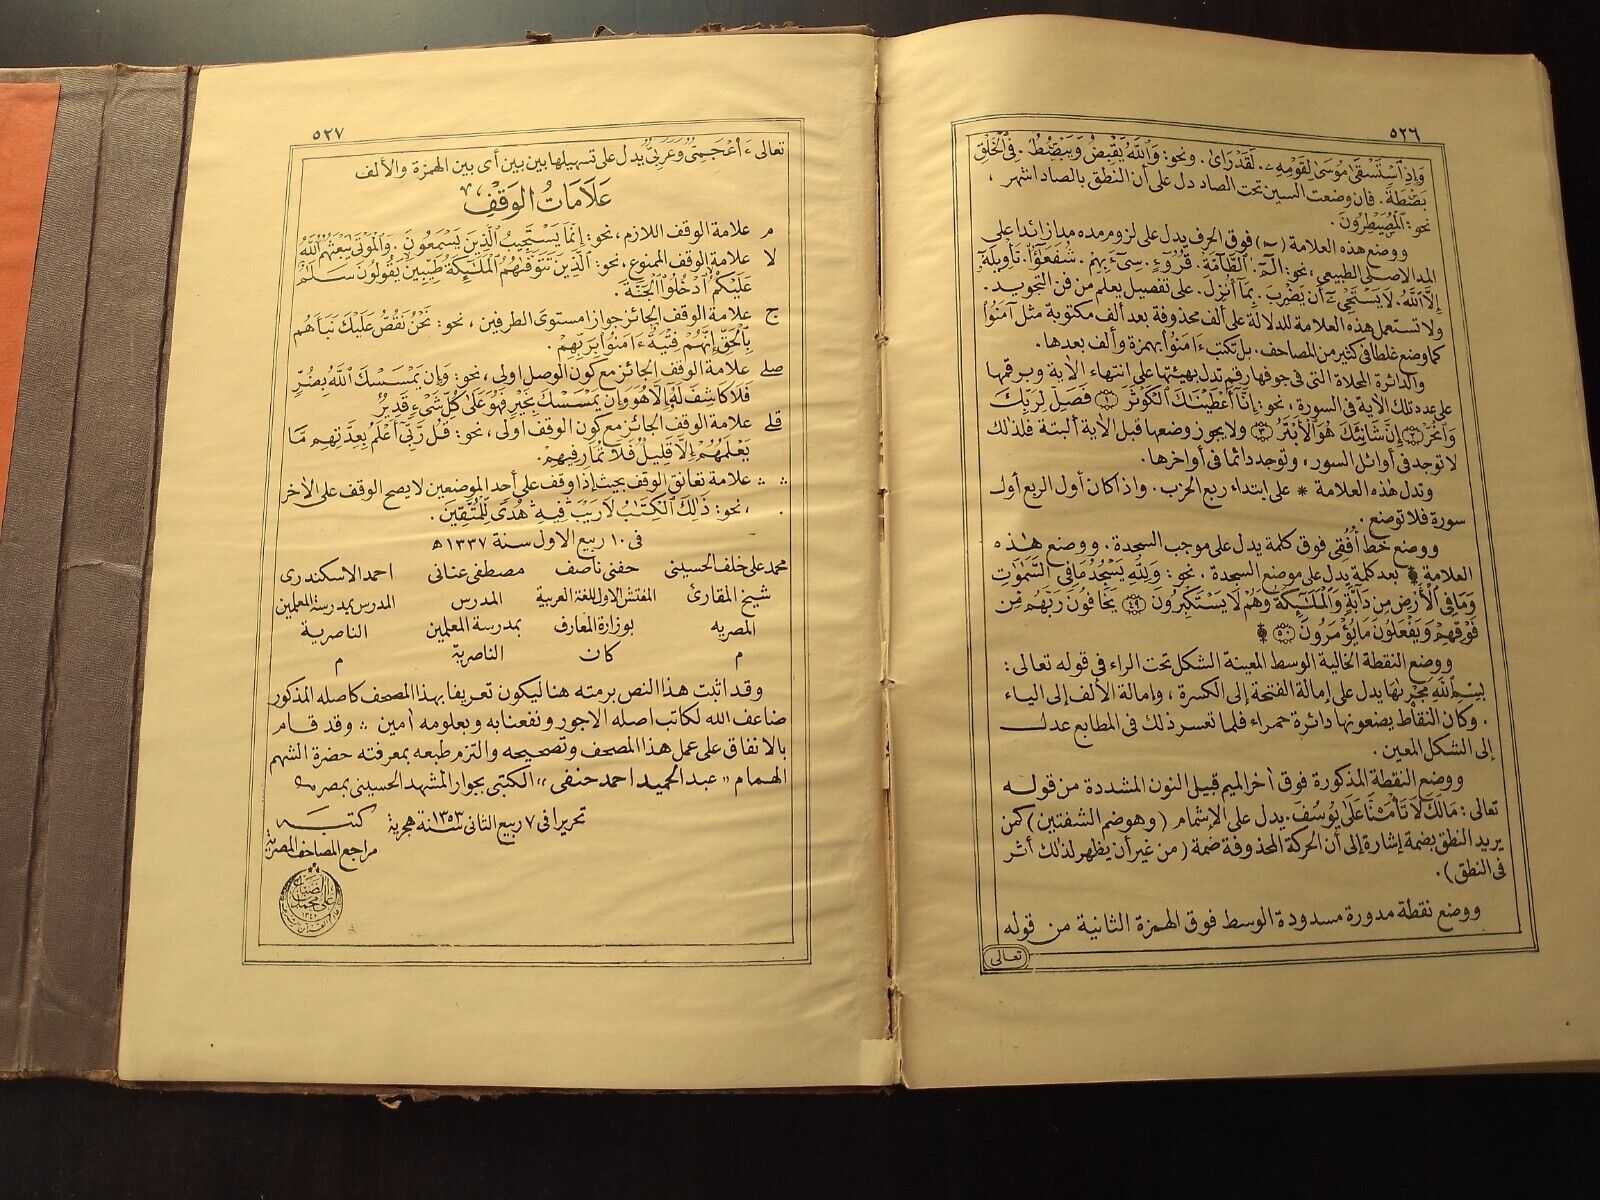 ٥٢٦
وَإِذِ ٱسْتَسْقَىٰ مُوسَىٰ لِقَوْمِهِۦ. لَقَدْ رَأَىٰ. ونحو: وَٱللَّهُ يَقْبِضُ وَيَبْصُۜطُ. فِى ٱلْخَلْقِ
بَصْۜطَةً. فان وضعت السين تحت الصاد دل على أن النطق بالصاد اشهر،
نحو: ٱلْمُصَۜيْطِرُونَ.
ووضع هذه العلامة (ٓ) فوق الحرف يدل على لزوم مده مدا زائدا على
المد الاصلى الطبيعى، نحو: الٓمٓ. ٱلطَّآمَّةُ. قُرُوٓءٍ. سِىٓءَ بِهِمْ. شُفَعَٰٓؤُا۟. تَأْوِيلَهُۥٓ
إِلَّا ٱللَّهُ. لَا يَسْتَحْىِۦٓ أَن يَضْرِبَ. بِمَآ أُنزِلَ. على تفصيل يعلم من فن التجويد.
ولا تستعمل هذه العلامة للدلالة على ألف محذوفة بعد ألف مكتوبة مثل آمنوا
كما وضع غلطا فى كثير من المصاحف. بل تكتب ءَامَنُوا۟ بهمزة وألف بعدها.
والدائرة المحلاة التى فى جوفها رقم تدل بهيئتها على انتهاء الآية وبرقمها
على عدد تلك الآية فى السورة، نحو: إِنَّآ أَعْطَيْنَٰكَ ٱلْكَوْثَرَ ۝١ فَصَلِّ لِرَبِّكَ
وَٱنْحَرْ ۝٢ إِنَّ شَانِئَكَ هُوَ ٱلْأَبْتَرُ ۝٣ ولا يجوز وضعها قبل الآية ألبتة فلذلك
لا توجد فى أوائل السور، وتوجد دائما فى أواخرها.
وتدل هذه العلامة * على ابتداء ربع الحزب. واذا كان أول الربع أول
سورة فلا توضع.
ووضع خط أفقى فوق كلمة يدل على موجب السجدة. ووضع هذه
العلامة ۩ بعد كلمة يدل على موضع السجدة. نحو: وَلِلَّهِ يَسْجُدُ مَا فِى ٱلسَّمَٰوَٰتِ
وَمَا فِى ٱلْأَرْضِ مِن دَآبَّةٍ وَٱلْمَلَٰٓئِكَةُ وَهُمْ لَا يَسْتَكْبِرُونَ ۝٤٩ يَخَافُونَ رَبَّهُم مِّن
فَوْقِهِمْ وَيَفْعَلُونَ مَا يُؤْمَرُونَ ۝٥٠ ۩
ووضع النقطة الخالية الوسط المعينة الشكل تحت الراء فى قوله تعالى:
بِسْمِ ٱللَّهِ مَجْر۪ىٰهَا يدل على إمالة الفتحة إلى الكسرة، وإمالة الألف إلى الياء
. وكان النقاط يضعونها دائرة حمراء فلما تعسر ذلك فى المطابع عدل
إلى الشكل المعين.
ووضع النقطة المذكورة فوق آخر الميم قبيل النون المشددة من قوله
تعالى: مَالَكَ لَا تَأْم۫نَّا عَلَىٰ يُوسُفَ. يدل على الإشمام (وهو ضم الشفتين) كمن
يريد النطق بضمة إشارة إلى أن الحركة المحذوفة ضمة (من غير أن يظهر لذلك أثر
فى النطق).
ووضع نقطة مدورة مسدودة الوسط فوق الهمزة الثانية من قوله
تعالى
٥٢٧
تعالى ءَا۬عْجَمِىٌّ وَعَرَبِىٌّ يدل على تسهيلها بين بين أى بين الهمزة والألف
عَلَامَاتُ الوَقْفِ
م علامة الوقف اللازم، نحو: إِنَّمَا يَسْتَجِيبُ ٱلَّذِينَ يَسْمَعُونَ. وَٱلْمَوْتَىٰ يَبْعَثُهُمُ ٱللَّهُ
لا علامة الوقف الممنوع، نحو: ٱلَّذِينَ تَتَوَفَّىٰهُمُ ٱلْمَلَٰٓئِكَةُ طَيِّبِينَ يَقُولُونَ سَلَٰمٌ
عَلَيْكُمُ ٱدْخُلُوا۟ ٱلْجَنَّةَ.
ج علامة الوقف الجائز جوازا مستوى الطرفين، نحو: نَّحْنُ نَقُصُّ عَلَيْكَ نَبَأَهُم
بِٱلْحَقِّ إِنَّهُمْ فِتْيَةٌ ءَامَنُوا۟ بِرَبِّهِمْ.
صلے علامة الوقف الجائز مع كون الوصل اولى، نحو: وَإِن يَمْسَسْكَ ٱللَّهُ بِضُرٍّ
فَلَا كَاشِفَ لَهُۥٓ إِلَّا هُوَ وَإِن يَمْسَسْكَ بِخَيْرٍ فَهُوَ عَلَىٰ كُلِّ شَىْءٍ قَدِيرٌ
قلے علامة الوقف الجائز مع كون الوقف أولى، نحو: قُل رَّبِّىٓ أَعْلَمُ بِعِدَّتِهِم مَّا
يَعْلَمُهُمْ إِلَّا قَلِيلٌ فَلَا تُمَارِ فِيهِمْ.
∴ ∴ علامة تعانق الوقف بحيث إذا وقف على أحد الموضعين لا يصح الوقف على الآخر
، نحو: ذَٰلِكَ ٱلْكِتَٰبُ لَا رَيْبَ فِيهِ هُدًى لِّلْمُتَّقِينَ.
فى ١٠ ربيع الاول سنة ١٣٣٧ ه
محمد على خلف الحسينى حفنى ناصف مصطفى عنانى احمد الاسكندرى
شيخ المقارئ المفتش الاول للغة العربية المدرس المدرس بمدرسة المعلمين
المصريه بوزارة المعارف بمدرسة المعلمين الناصرية
م كان الناصرية م
وقد اثبت هذا النص برمته هنا ليكون تعريفا بهذا المصحف كاصله المذكور
ضاعف الله لكاتب اصله الاجور ونفعنا به وبعلومه آمين ∴ وقد قام
بالانفاق على عمل هذا المصحف وتصحيحه والتزم طبعه بمعرفته حضرة الشهم
الهمام "عبد الحميد احمد حنفى" الكتبى بجوار المشهد الحسينى بمصر
تحريرا فى ٧ ربيع الثانى سنة ١٣٥٣ هجرية كتبه
مراجع المصاحف المصرية
على محمد الضباع
١٣٤٢